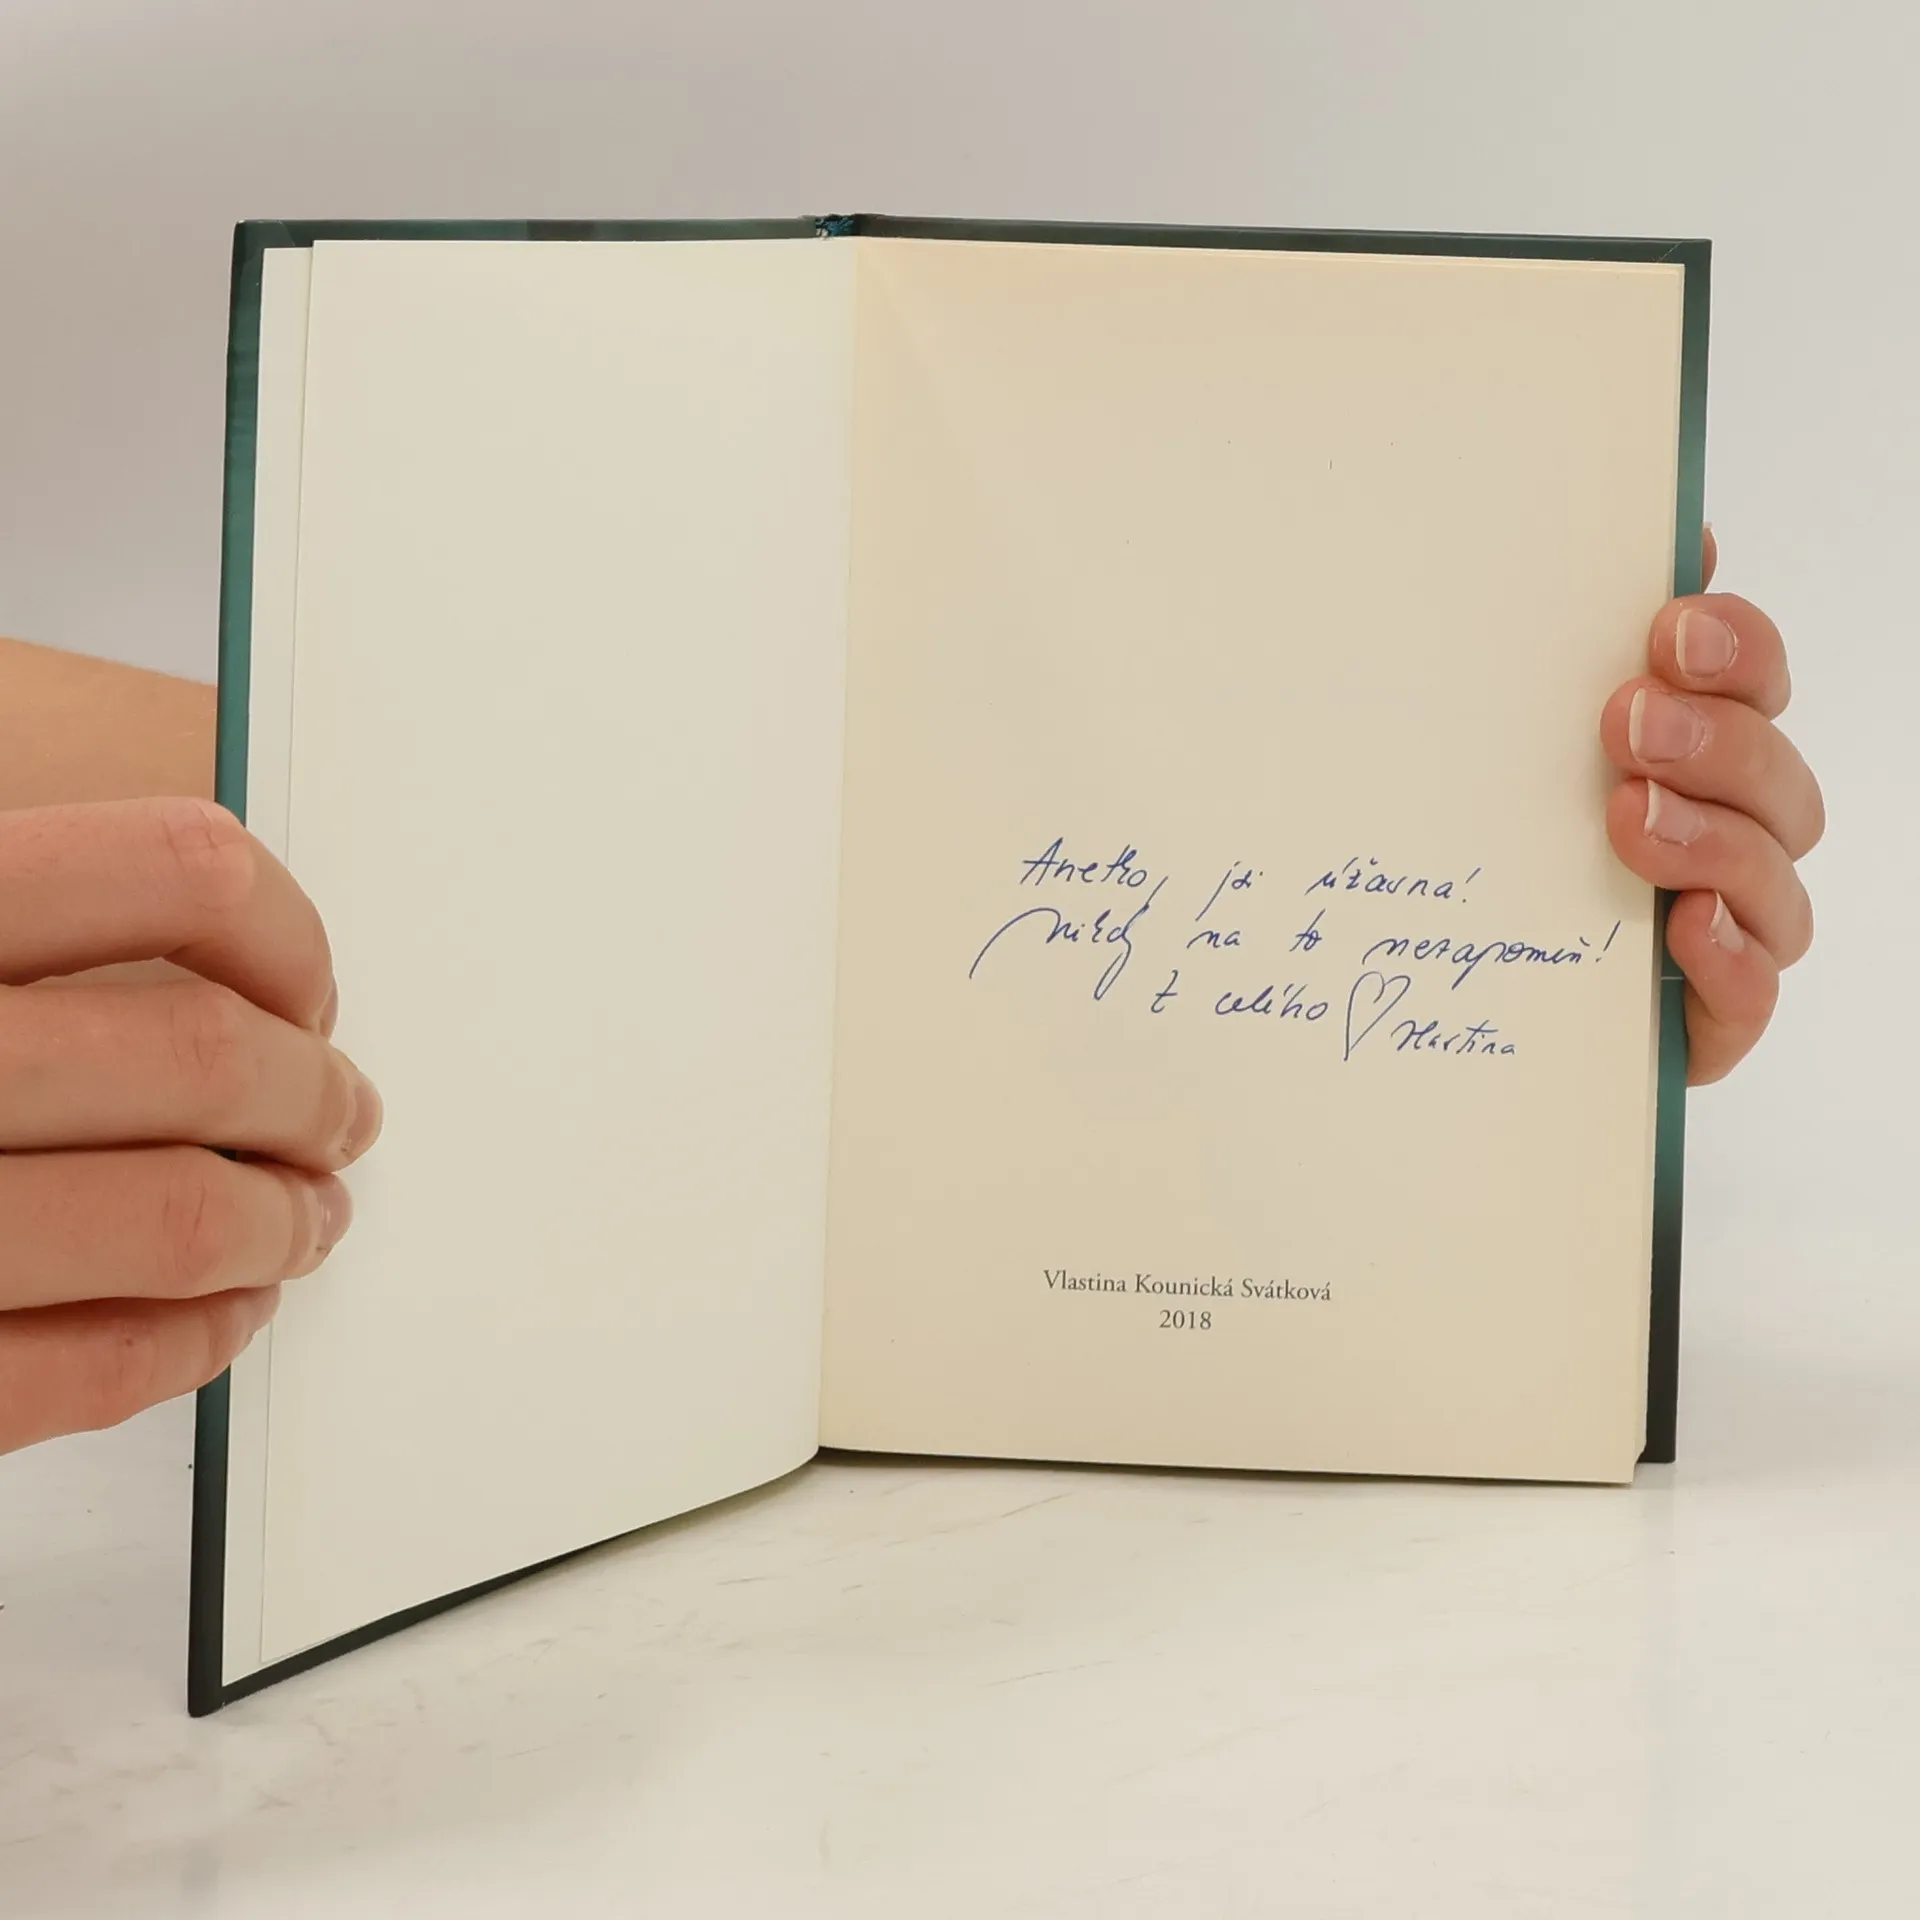 Anetko, jsi úžasná!
Nikdy na to nezapomeň!
Z celého ♡ Vlastina
Vlastina Kounická Svátková
2018